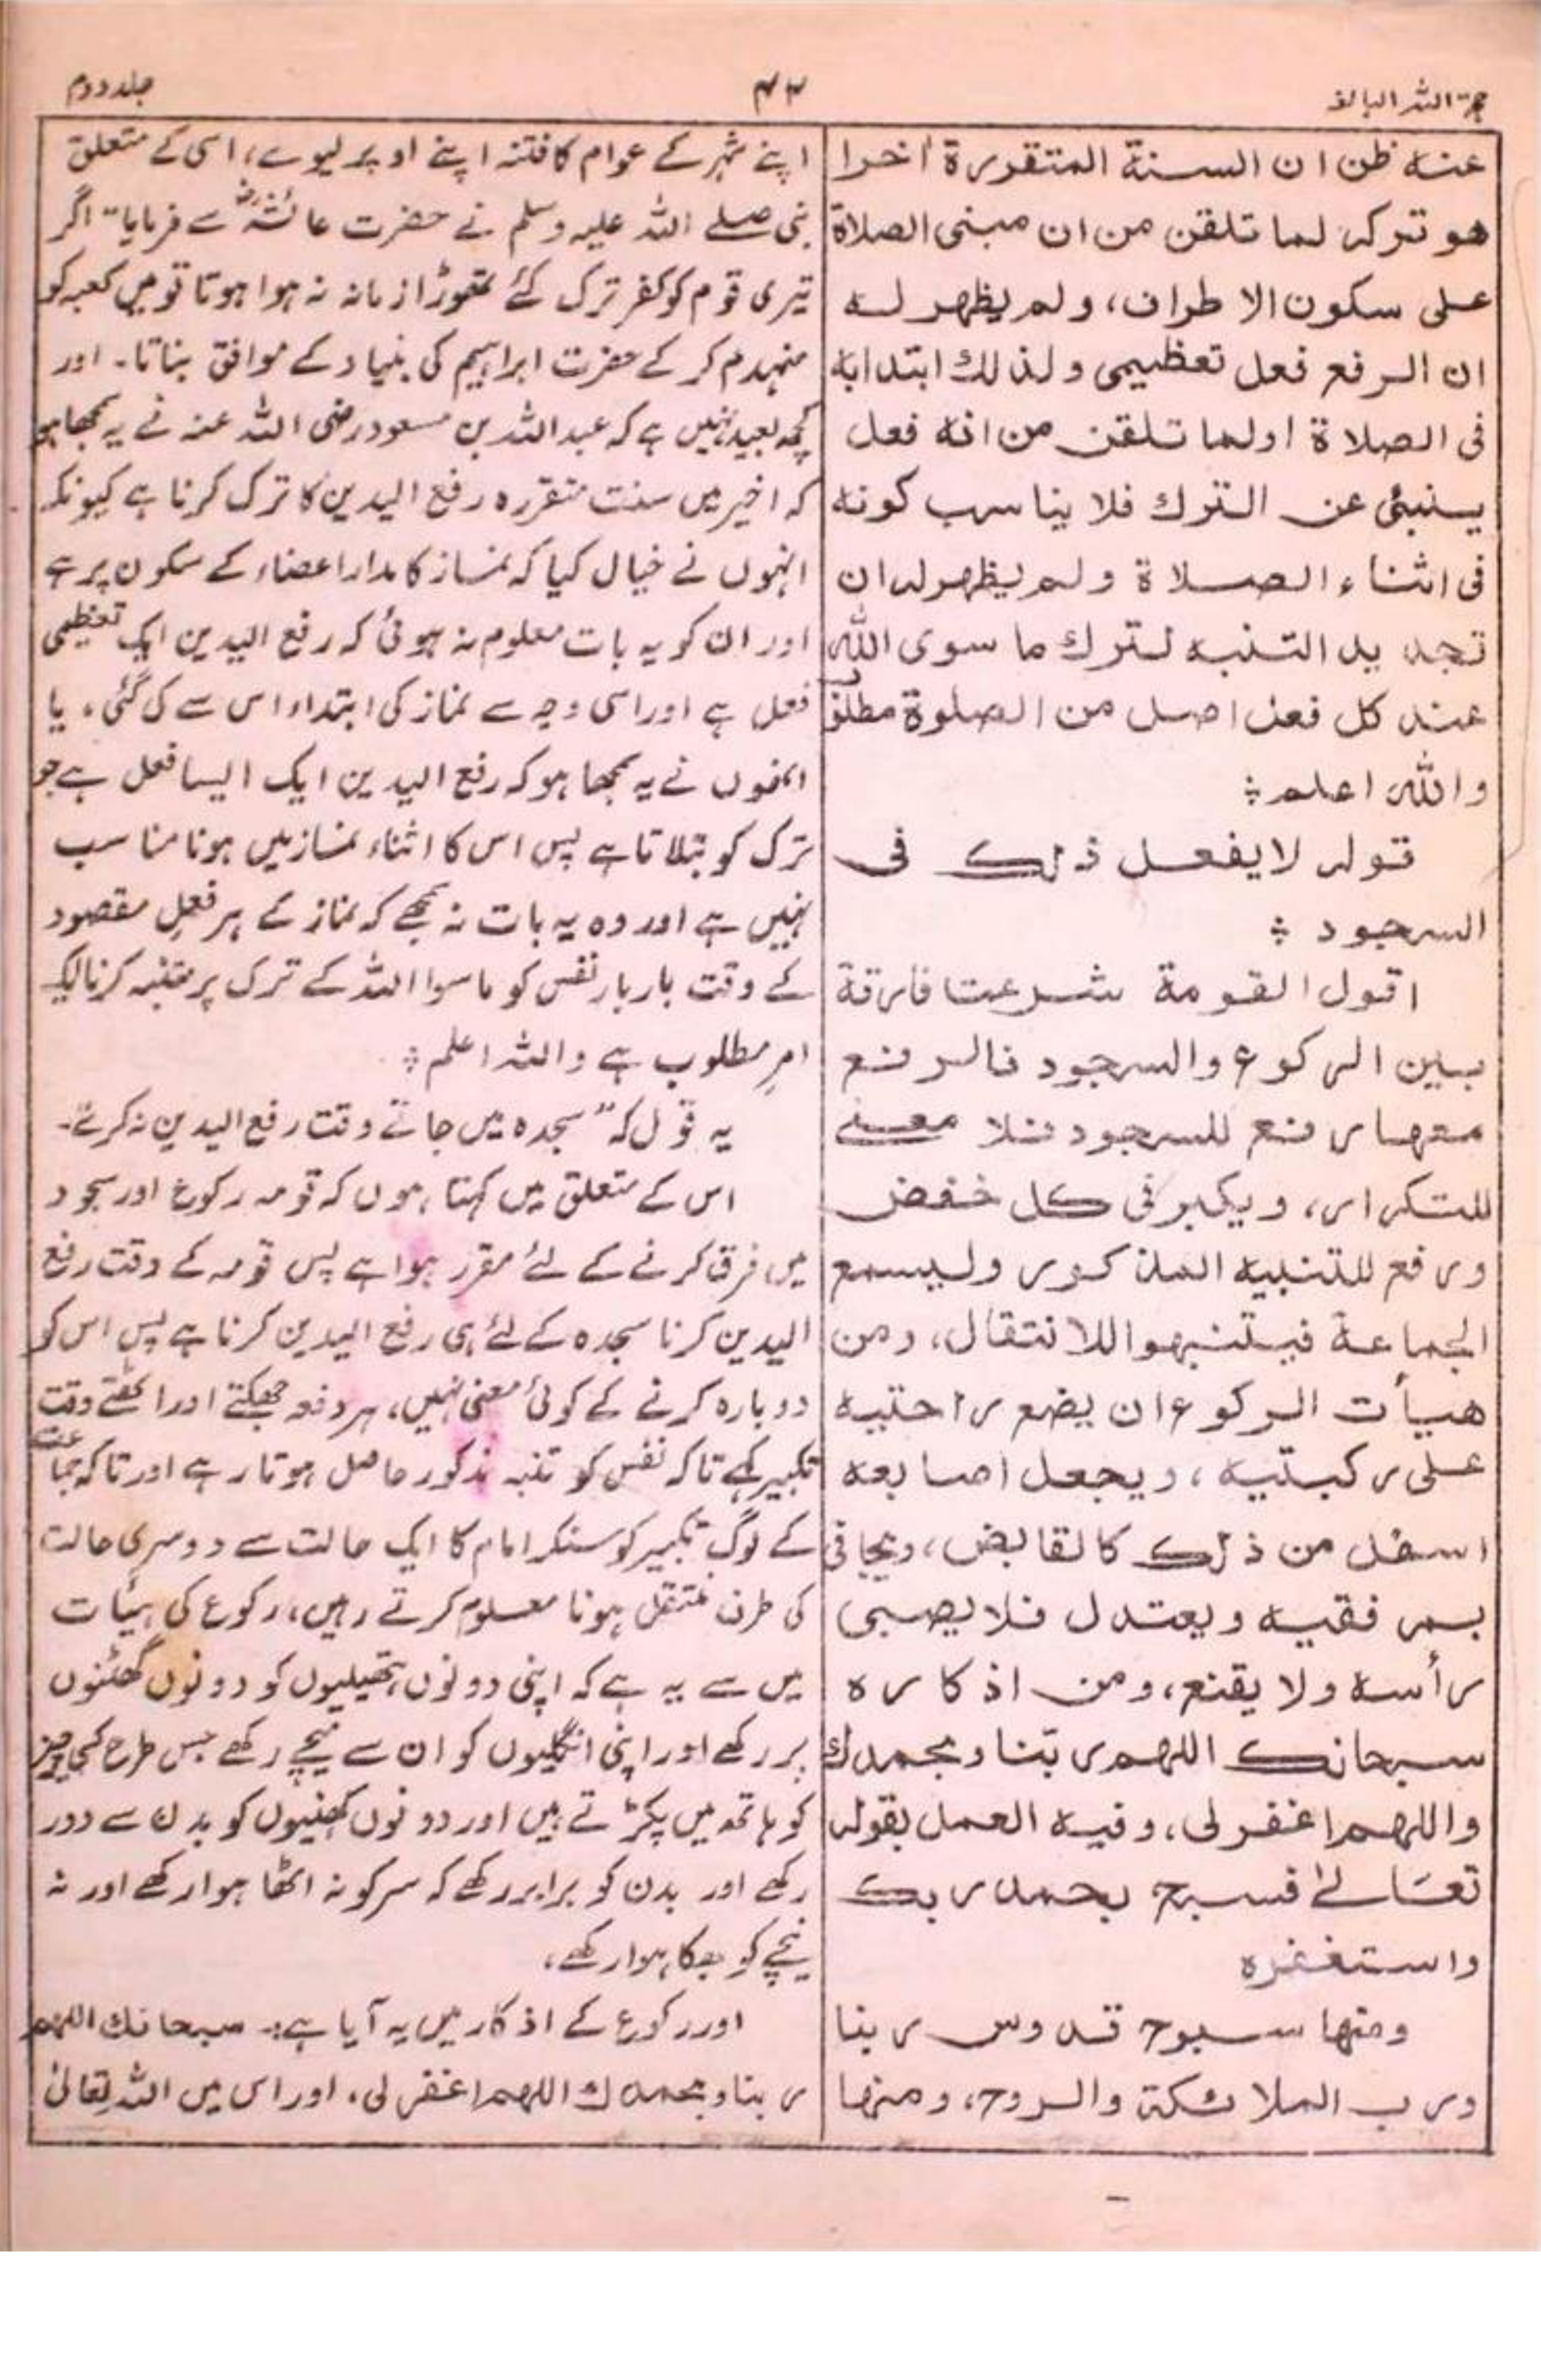 حجۃ اللہ البالغہ
۴۴
جلد دوم
عنہ ظن ان السنة المتقررة اخرا
هو تركہ لما تلقن من ان مبنى الصلاة
على سكون الاطراف، ولم يظهر لہ
ان الرفع فعل تعظيمى ولذلك ابتدابہ
فى الصلاة اولما تلقن من انہ فعل
ينبئى عن الترك فلا يناسب كونہ
فى اثناء الصلاة ولم يظهرلہ ان
تجديد التنبہ لترك ما سوى اللّٰہ
عند كل فعل اصل من الصلوة مطلوب
واللّٰہ اعلم ؞
قولہ لا يفعل ذلك فى
السجود ؞
اقول القومة شرعت فارقة
بين الركوع والسجود فالرفع
معها رفع للسجود فلا معنے
للتكرار، ويكبر فى كل خفض
ورفع للتنبيہ المذكور وليسمع
الجماعة فيتنبهوا للانتقال، ومن
هيأت الركوع ان يضع راحتيہ
على ركبتيہ، ويجعل اصابعہ
اسفل من ذلك كالقابض، ويجافى
بمرفقيہ ويعتدل فلا يصبى
رأسہ ولا يقنع، ومن اذكارہ
سبحانك اللهم ربنا وبحمدك
واللهم اغفرلى، وفيہ العمل بقولہ
تعَالےٰ فسبح بحمد ربك
واستغفرہ
ومنها سبوح قدوس ربنا
ورب الملائكة والروح، ومنها
اپنے شہر کے عوام کا فتنہ اپنے اوپر لیوے، اسی کے متعلق
نبی صلے اللہ علیہ وسلم نے حضرت عائشہؓ سے فرمایا "اگر
تیری قوم کو کفر ترک کئے تھوڑا زمانہ نہ ہوا ہوتا تو میں کعبہ کو
منہدم کر کے حضرت ابراہیم کی بنیاد کے موافق بناتا۔ اور
کچھ بعید نہیں ہے کہ عبد اللہ بن مسعود رضی اللہ عنہ نے یہ سمجھا ہو
کہ اخیر میں سنت متقررہ رفع الیدین کا ترک کرنا ہے کیونکہ
انہوں نے خیال کیا کہ نماز کا مدار اعضاء کے سکون پر ہے
اور ان کو یہ بات معلوم نہ ہوئی کہ رفع الیدین ایک تعظیمی
فعل ہے اور اسی وجہ سے نماز کی ابتداء اس سے کی گئی، یا
انھوں نے یہ سمجھا ہو کہ رفع الیدین ایک ایسا فعل ہے جو
ترک کو بتلاتا ہے پس اس کا اثناء نماز میں ہونا مناسب
نہیں ہے اور وہ یہ بات نہ سمجھے کہ نماز کے ہر فعلِ مقصود
کے وقت بار بار نفس کو ماسوا اللہ کے ترک پر متنبہ کرنا ایک
امرِ مطلوب ہے واللہ اعلم ؞
یہ قول کہ "سجدہ میں جاتے وقت رفع الیدین نہ کرتے۔
اس کے متعلق میں کہتا ہوں کہ قومہ رکوع اور سجود
میں فرق کرنے کے لئے مقرر ہوا ہے پس قومہ کے وقت رفع
الیدین کرنا سجدہ کے لئے ہی رفع الیدین کرنا ہے پس اس کو
دوبارہ کرنے کے کوئی معنی نہیں، ہر دفعہ جھکتے اور اٹھتے وقت
تکبیر کہے تاکہ نفس کو تنبہ مذکور حاصل ہوتا رہے اور تاکہ جماعت
کے لوگ تکبیر کو سنکر امام کا ایک حالت سے دوسری حالت
کی طرف منتقل ہونا معلوم کرتے رہیں، رکوع کی ہیئات
میں سے یہ ہے کہ اپنی دونوں ہتھیلیوں کو دونوں گھٹنوں
پر رکھے اور اپنی انگلیوں کو ان سے نیچے رکھے جس طرح کسی چیز
کو ہاتھ میں پکڑتے ہیں اور دونوں کہنیوں کو بدن سے دور
رکھے اور بدن کو برابر رکھے کہ سر کو نہ اٹھا ہوا رکھے اور نہ
نیچے کو جھکا ہوا رکھے،
اور رکوع کے اذکار میں یہ آیا ہے:۔ سبحانك اللهم
ربنا وبحمدك اللهم اغفرلى، اور اس میں اللہ تعالیٰ